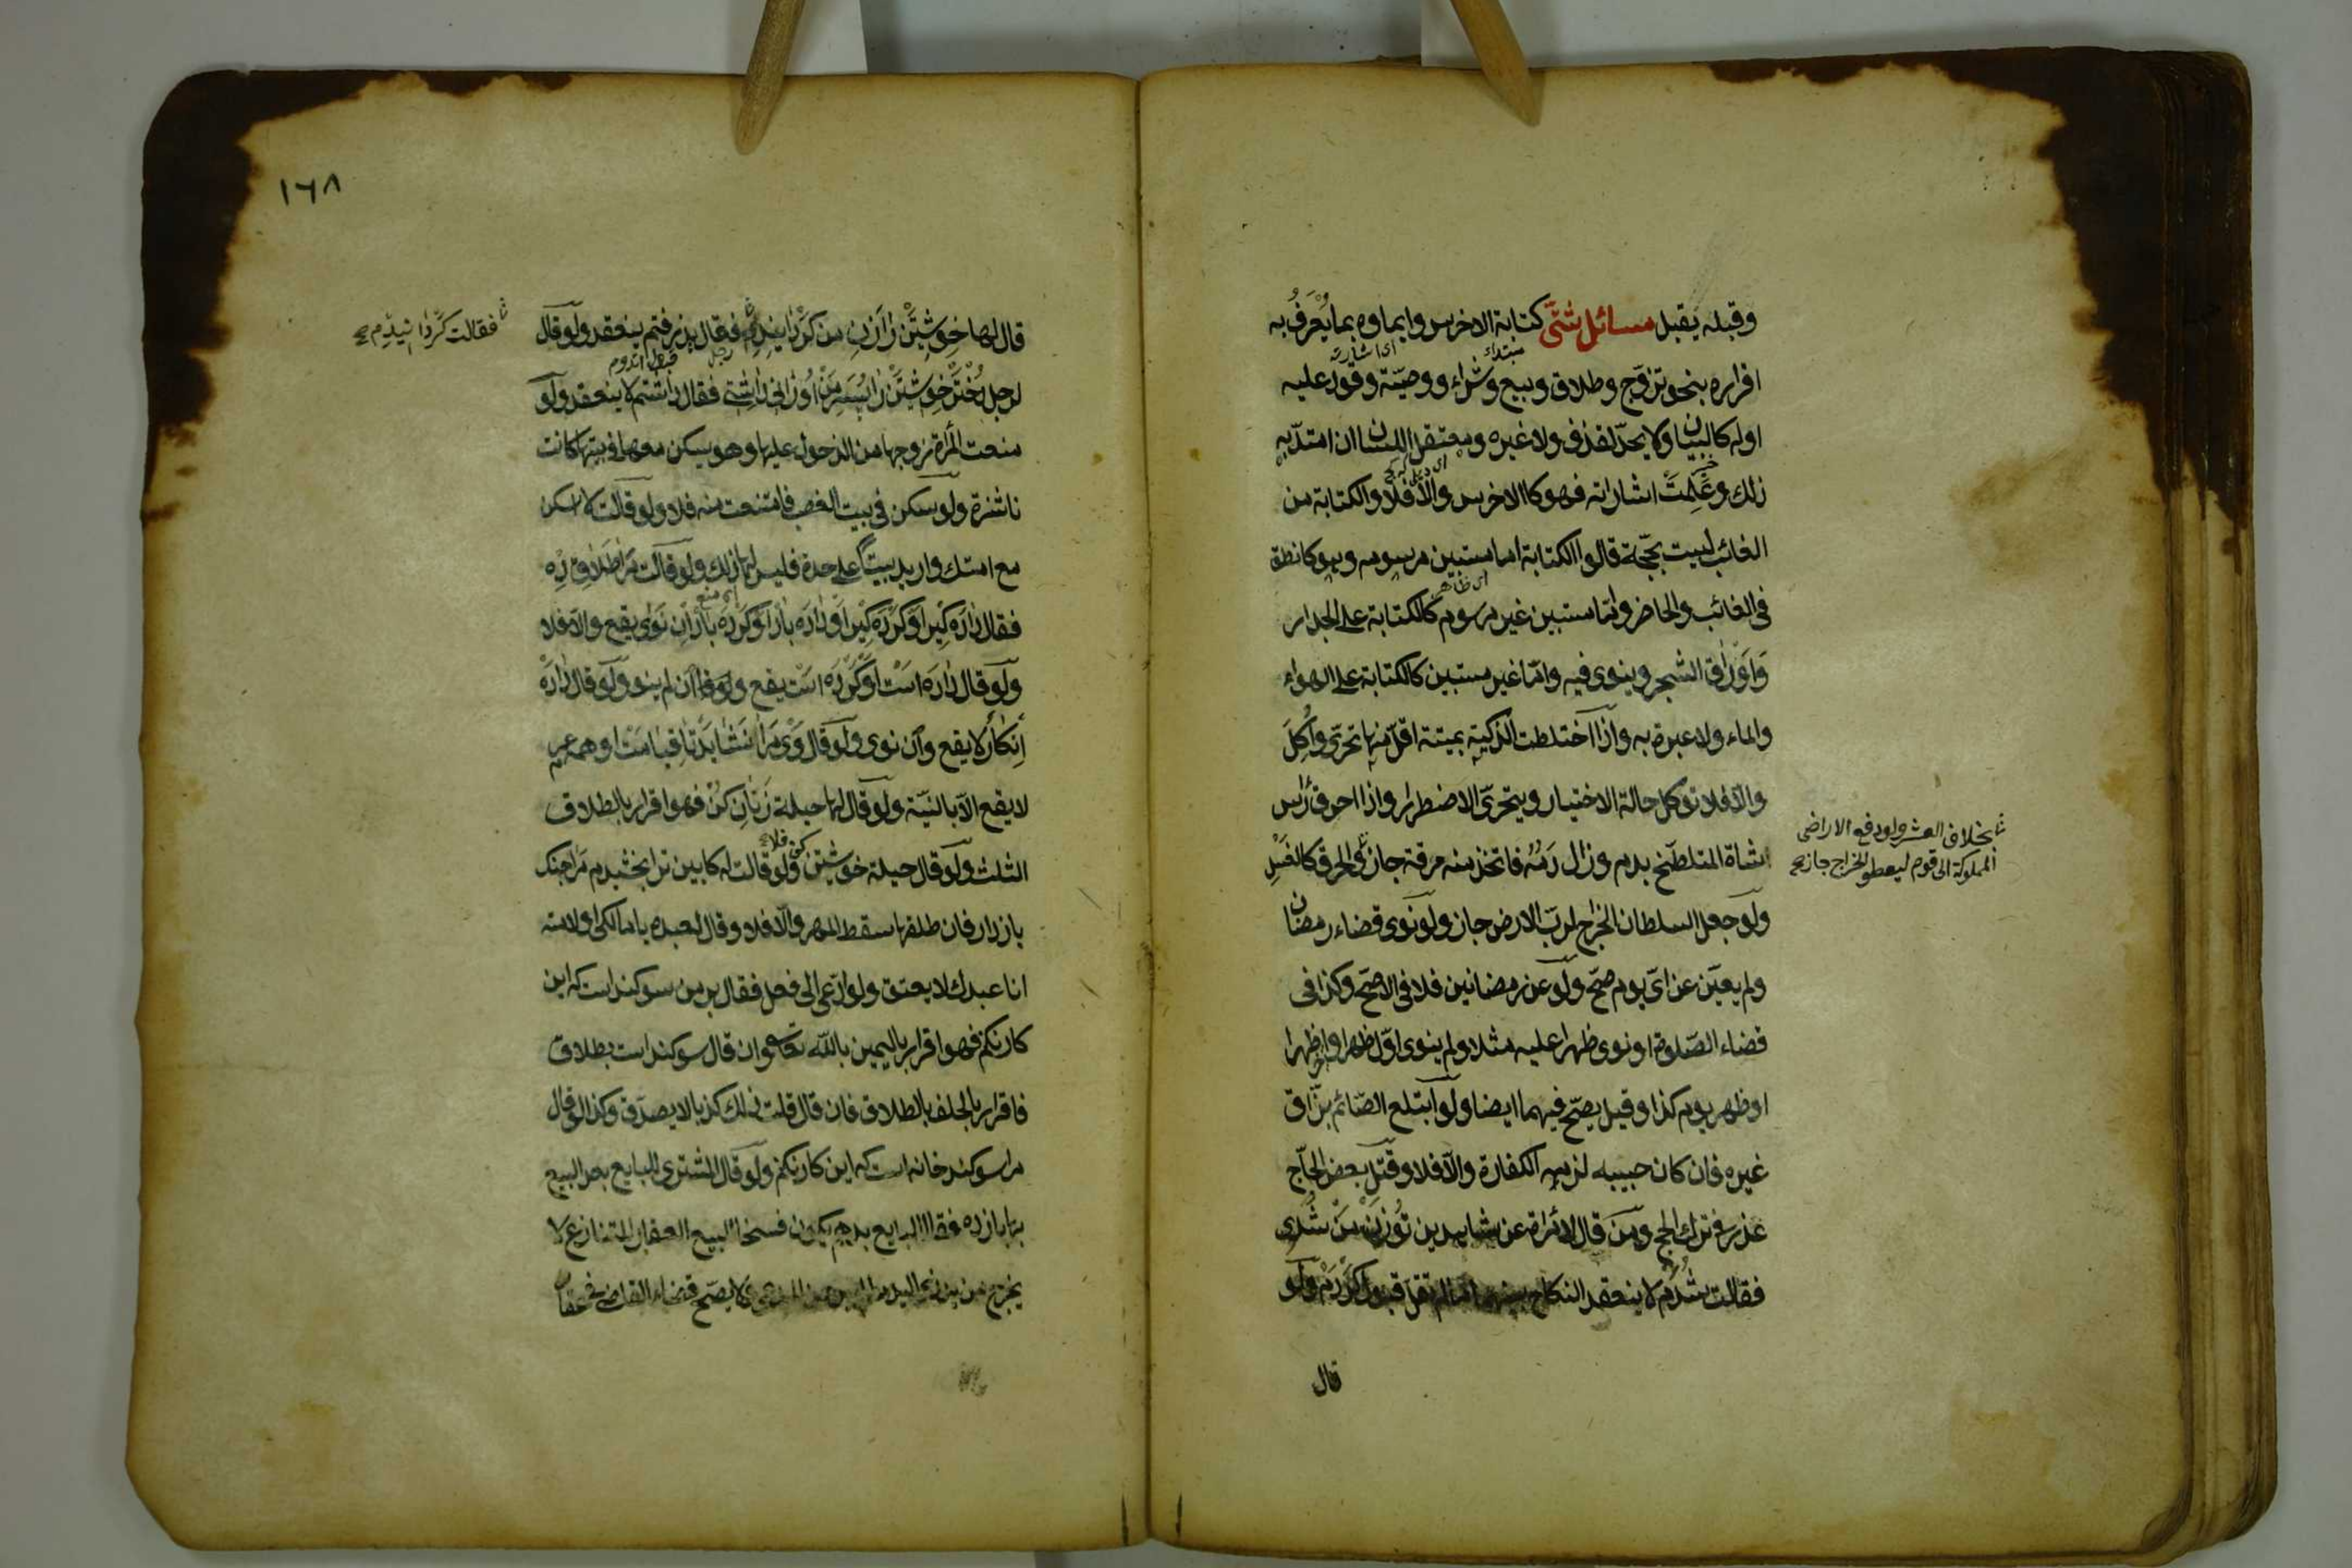 وقبله يقبل مسائل شتى كتابة الاخرس وايماوه بما يعرف به
اقراره بنحو تزوج وطلاق وبيع وشراء ووصية وقود عليه
اوله كالبيان ولا يحد لقذف ولا غيره ومعتقل اللسان ان امتد به
ذلك وعلمت اشاراته فهو كالاخرس والا فلا والكتابة من
الغائب ليست بحجة قالوا الكتابة اما مستبين مرسوم وهو كالنطق
فى الغائب والحاضر واما مستبين غير مرسوم كالكتابة على الجدار
واوراق الشجر وينوى فيه واما غير مستبين كالكتابة على الهواء
والماء ولا عبرة به واذا اختلطت الذكية بميتة اقل منها تحرى واكل
والا فلا تؤكل حالة الاختيار ويتحرى الاضطرار واذا احرق رأس
شاة المتلطخ بدم وزال دمه فاتخذ منه مرقة جاز والحرق كالغسل
ولو جعل السلطان الخراج لرب الارض جاز ولو نوى قضاء رمضان
ولم يعين عن اى يوم صح ولو عن رمضانين فلا فى الاصح وكذا فى
قضاء الصلوة او نوى ظهرا عليه مثلا ولم ينوى اول ظهر او اخر ظهرا
او ظهر يوم كذا وقيل يصح فيهما ايضا ولو ابتلع الصائم بزاق
غيره فان كان حبيبه لزمه الكفارة والا فلا وقتل بعض الحاج
عذر فى ترك الحج ومن قال لامرأة عن شاهدين تو زن من شدى
فقالت شدم لا ينعقد النكاح بينهما ما لم تقل قبول كردم ولو
قال
مبتداء
اى اشارته
اى ظاهر
بخلاف العشر ولو دفع الاراضى
المملوكة الى قوم ليعطوا الخراج جاز صح
١٦٨
قال لها خويشتن را زن من كردانيدى فقال پذيرفتم ينعقد ولو قال
لرجل دختر خويشتن را بپسر من ارزانى داشتى فقال داشتم لا ينعقد ولو
منعت المرأة زوجها من الدخول عليها وهو يسكن معها فى بيتها كانت
ناشزة ولو سكن فى بيت الغصب فامتنعت منه فلا ولو قالت لا اسكن
مع امتك واريد بيتا على حدة فليس لها ذلك ولو قالت مرا طلاق ده
فقال داده كير او كرده كير او داده باد او كرده باد ان نوى يقع والا فلا
ولو قال داده است او كرده است يقع وان لم ينو ولو قال داده
انكار لا يقع وان نوى ولو قال وى مرا نشايد تا قيامت او همه عمر
لا يقع الا بالنية ولو قال لها حيلة زنان كن فهو اقرار بالطلاق
الثلث ولو قال حيلة خويشتن كن فلا ولو قالت له كابين ترا بخشيدم مرا چنك
باز دار فان طلقها سقط المهر والا فلا وقال لعبده يا مالكى ولامته
انا عبدك لا يعتق ولو ادعى الى فعل فقال بر من سوكند است كه اين
كار نكنم فهو اقرار باليمين بالله تعالى وان قال سوكند است بطلاق
فاقرار بالحلف بالطلاق فان قال قلت ذلك كذبا لا يصدق وكذا لو قال
مرا سوكند خانه است كه اين كار نكنم ولو قال المشترى للبايع بعد البيع
بها باز ده فقال البايع بدهم يكون فسخا للبيع العقار المتنازع لا
يخرج من يد ذى اليد ما لم يبرهن المدعى لا يصح قضاء القاضى فى عقار
فقالت كردانيدم صح
اى منع